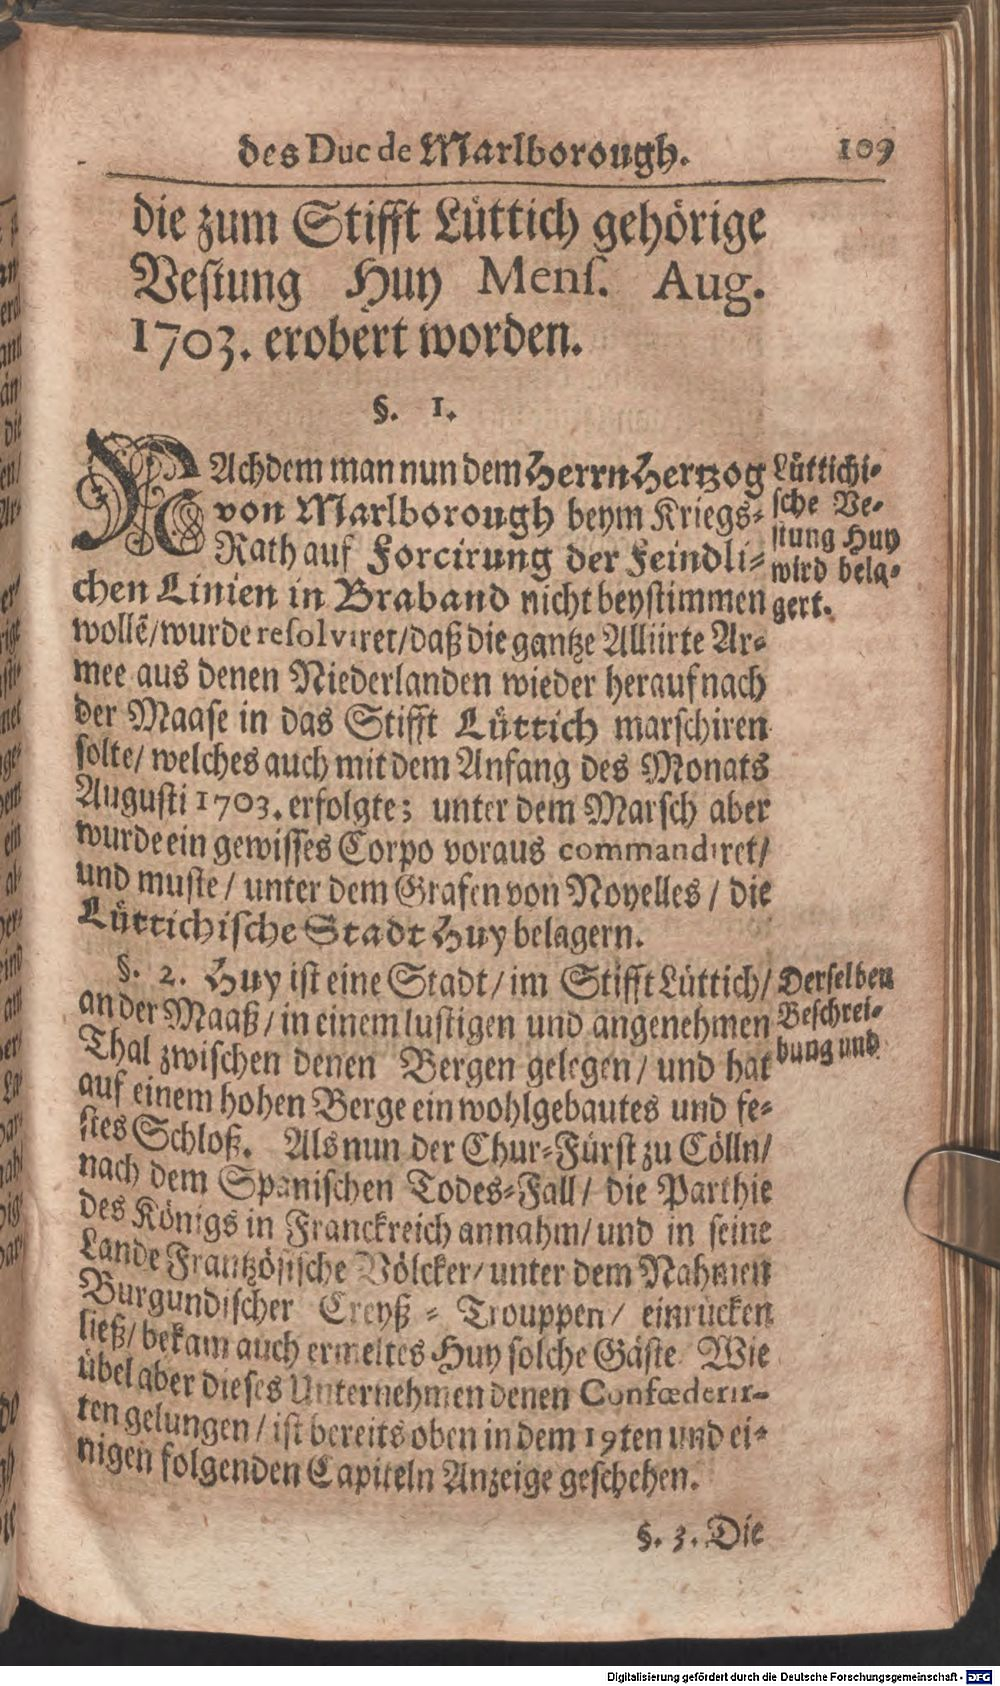 des Duc de Marlborough. 109
die zum Stifft Lüttich gehörige
Vestung Huy Menſ. Aug.
1703. erobert worden.
§. 1.
NAchdem man nun dem Herrn Hertzog
von Marlborough beym Kriegs-
Rath auf Forcirung der Feindli-
chen Linien in Braband nicht beystimmen
wollẽ/ wurde reſolviret/ daß die gantze Alliirte Ar-
mee aus denen Niederlanden wieder herauf nach
der Maase in das Stifft Lüttich marschiren
solte/ welches auch mit dem Anfang des Monats
Augusti 1703. erfolgte; unter dem Marsch aber
wurde ein gewisses Corpo voraus commandiret/
und muste/ unter dem Grafen von Noyelles/ die
Lüttichische Stadt Huy belagern.
Lüttichi-
sche Ve-
stung Huy
wird bela-
gert.
§. 2. Huy ist eine Stadt/ im Stifft Lüttich/
an der Maaß/ in einem lustigen und angenehmen
Thal zwischen denen Bergen gelegen/ und hat
auf einem hohen Berge ein wohlgebautes und fe-
stes Schloß. Als nun der Chur-Fürst zu Cölln/
nach dem Spanischen Todes-Fall/ die Parthie
des Königs in Franckreich annahm/ und in seine
Lande Frantzösische Völcker/ unter dem Nahmen
Burgundischer Creyß-Trouppen/ einrücken
ließ/ bekam auch ermeltes Huy solche Gäste. Wie
übel aber dieses Unternehmen denen Confœderir-
ten gelungen/ ist bereits oben in dem 19ten und ei-
nigen folgenden Capiteln Anzeige geschehen.
Derselben
Beschrei-
bung und
§. 3. Die
Digitalisierung gefördert durch die Deutsche Forschungsgemeinschaft - DFG